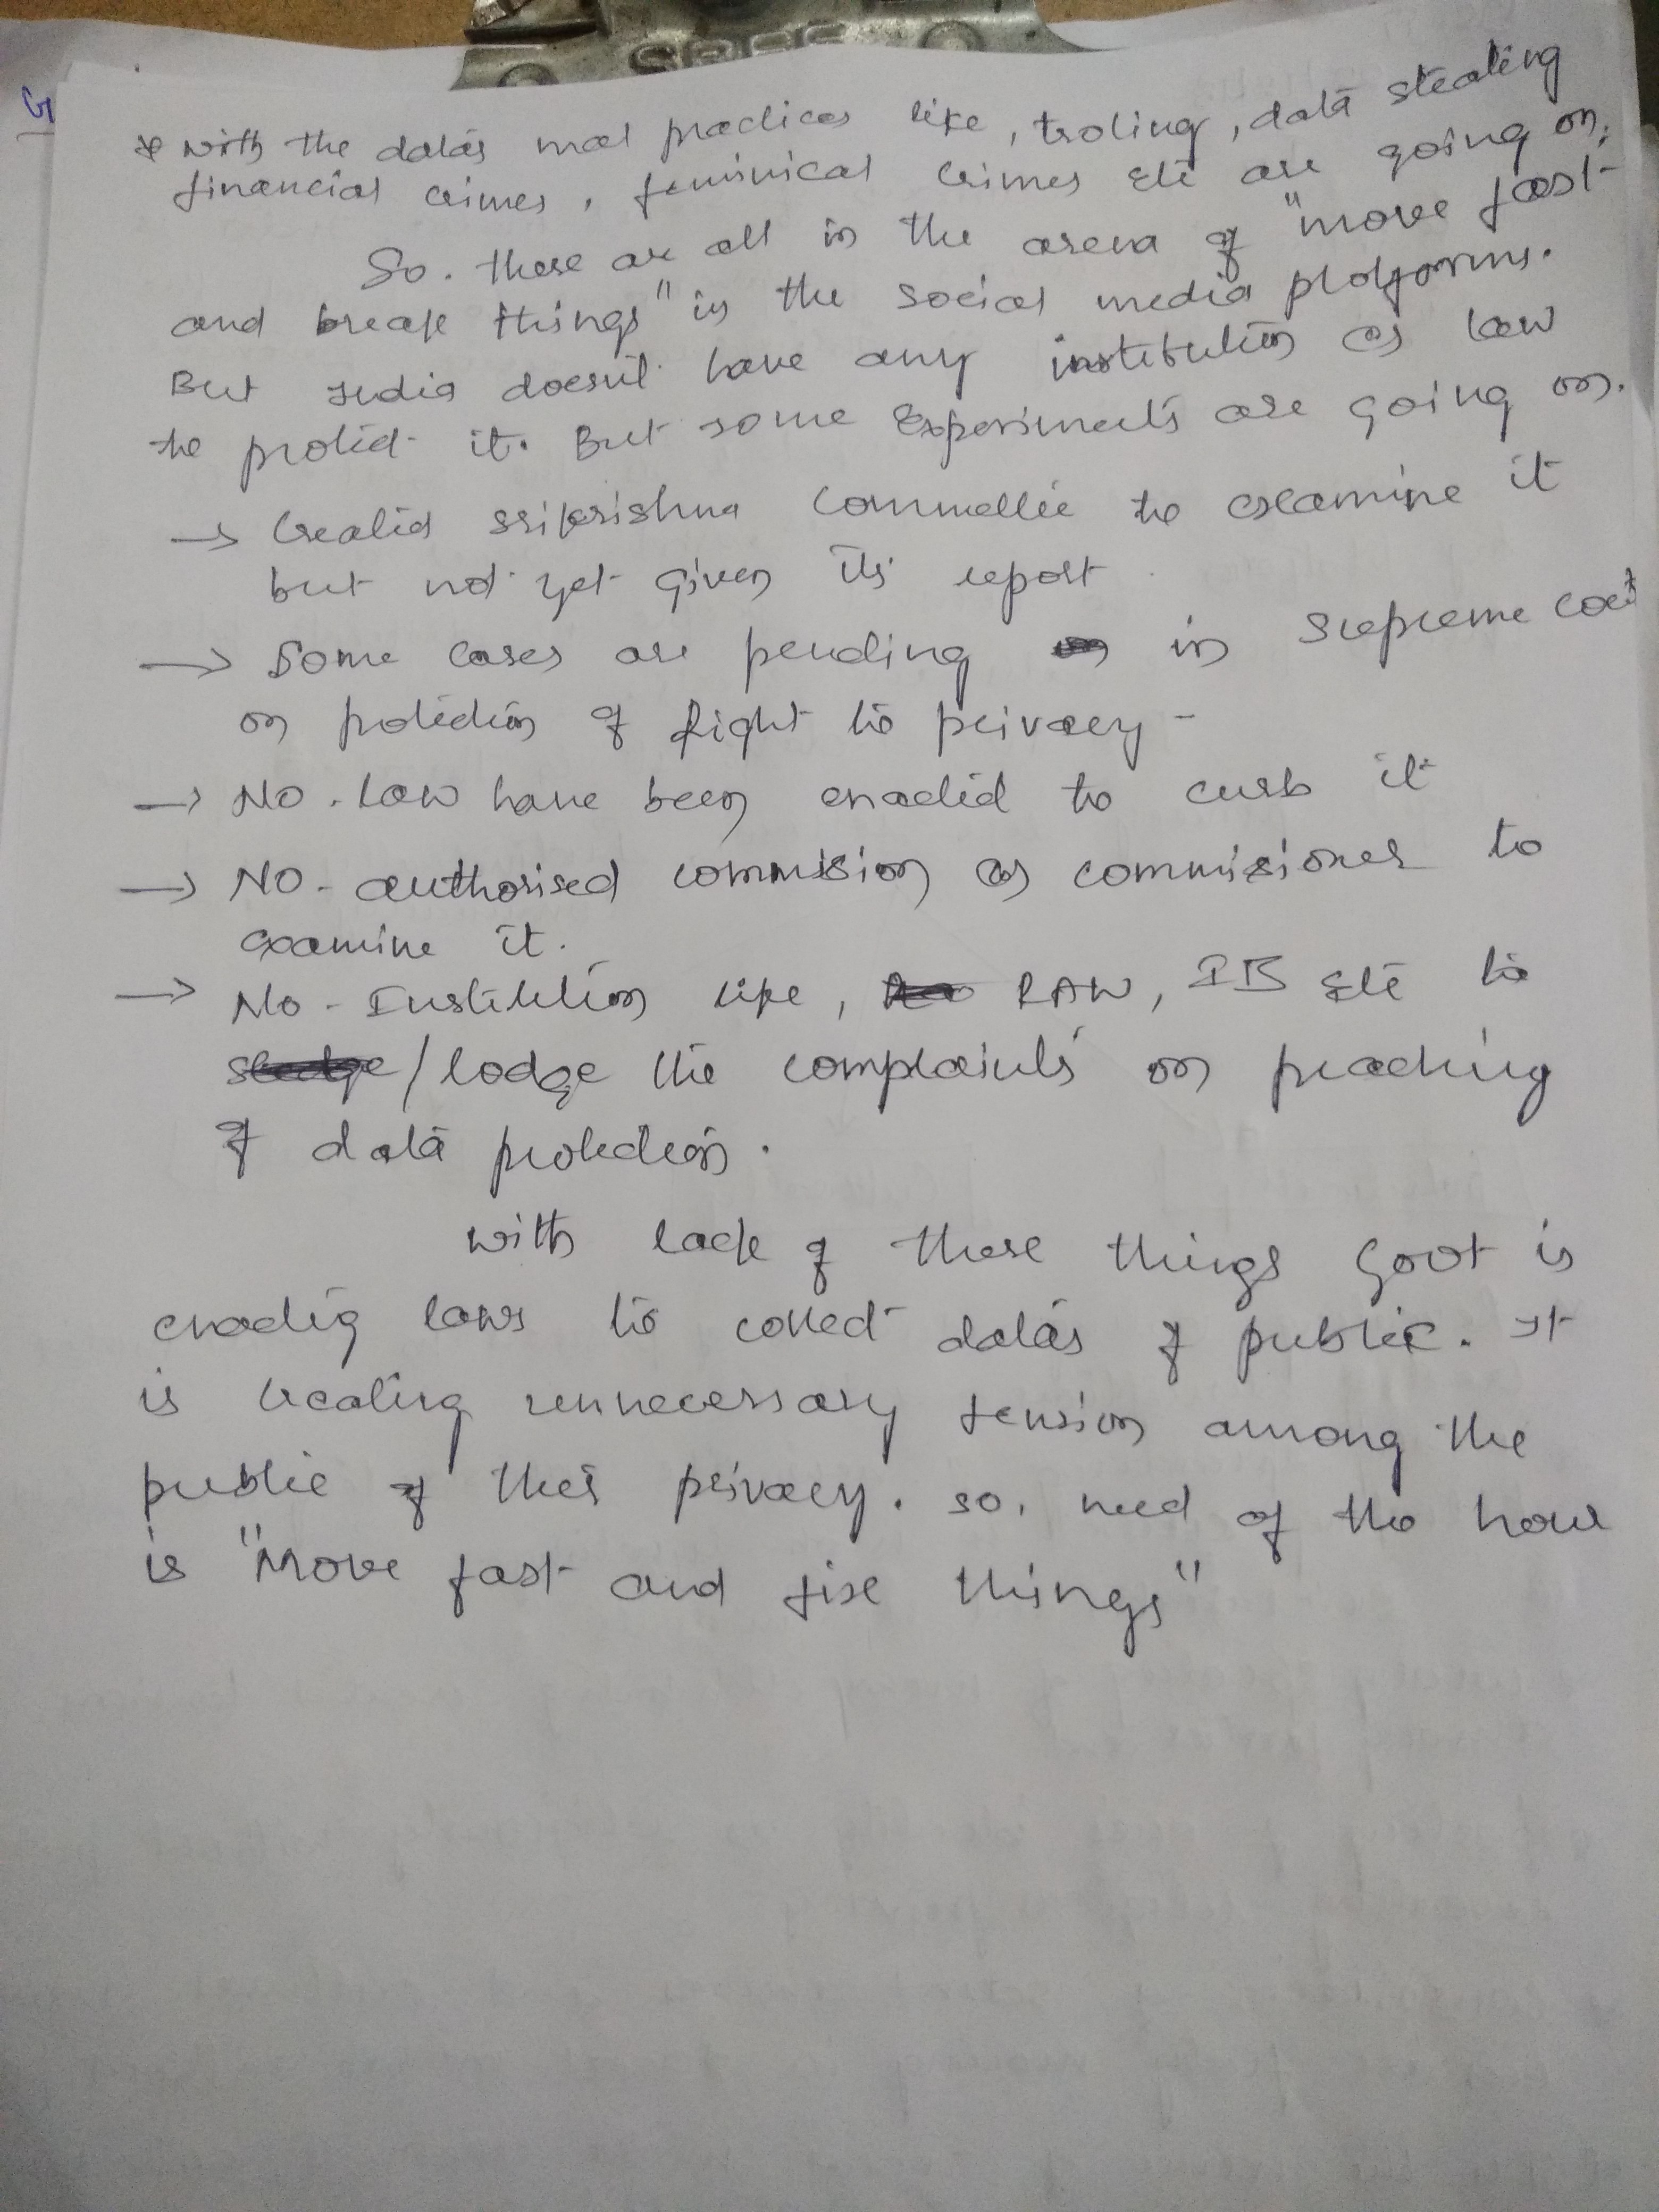 * with the datas mal practices like, troling, data stealing
financial crimes, feminical crimes etc are going on.
So. these are all in the arena of "move fast
and break things" in the social media platforms.
But India doesn't have any institution or law
to protect it. But some experiments are going on.
→ Created srikrishna committee to examine it
but not yet given its report
→ Some cases are pending in supreme court
on protection of Right to privacy -
→ No. law have been enacted to curb it
→ NO - authorised commision or commisioner to
examine it.
→ No - Institution like, RAW, IB etc to
/lodge the complaints on preaching
of data protection.
with lack of these things Govt is
enactig laws to collect datas of public. It
is creating unnecessary tension among the
public of their privacy. so, need of the hour
is "Move fast and fixe things"